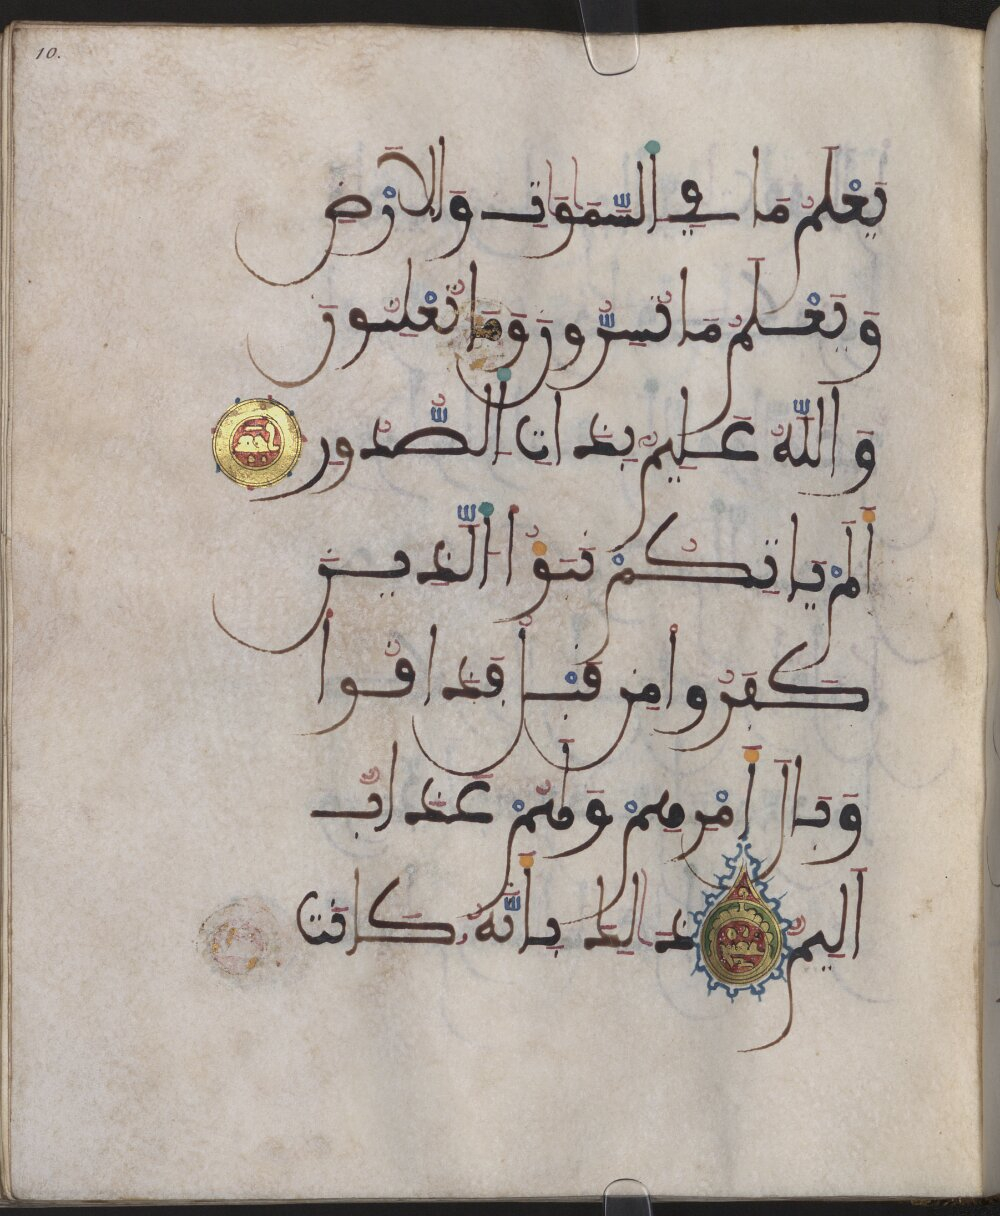 10.
يَعْلَمُ مَا فِي السَّمَٰوَٰتِ وَالَارْضِ
وَيَعْلَمُ مَا تُسِرُّونَ وَمَا تُعْلِنُونَ
وَاللَّهُ عَلِيمٌ بِذَاتِ الصُّدُورِ
أَلَمْ يَاتِكُمْ نَبَؤُا الَّذِينَ
كَفَرُوا مِن قَبْلُ فَذَاقُوا
وَبَالَ أَمْرِهِمْ وَلَهُمْ عَذَابٌ
اَلِيمٌ ذَٰلِكَ بِأَنَّهُ كَانَت